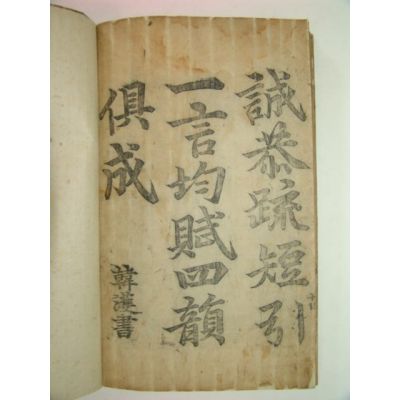 誠恭疏短引
一言均賦四韻
俱成
韓濩書